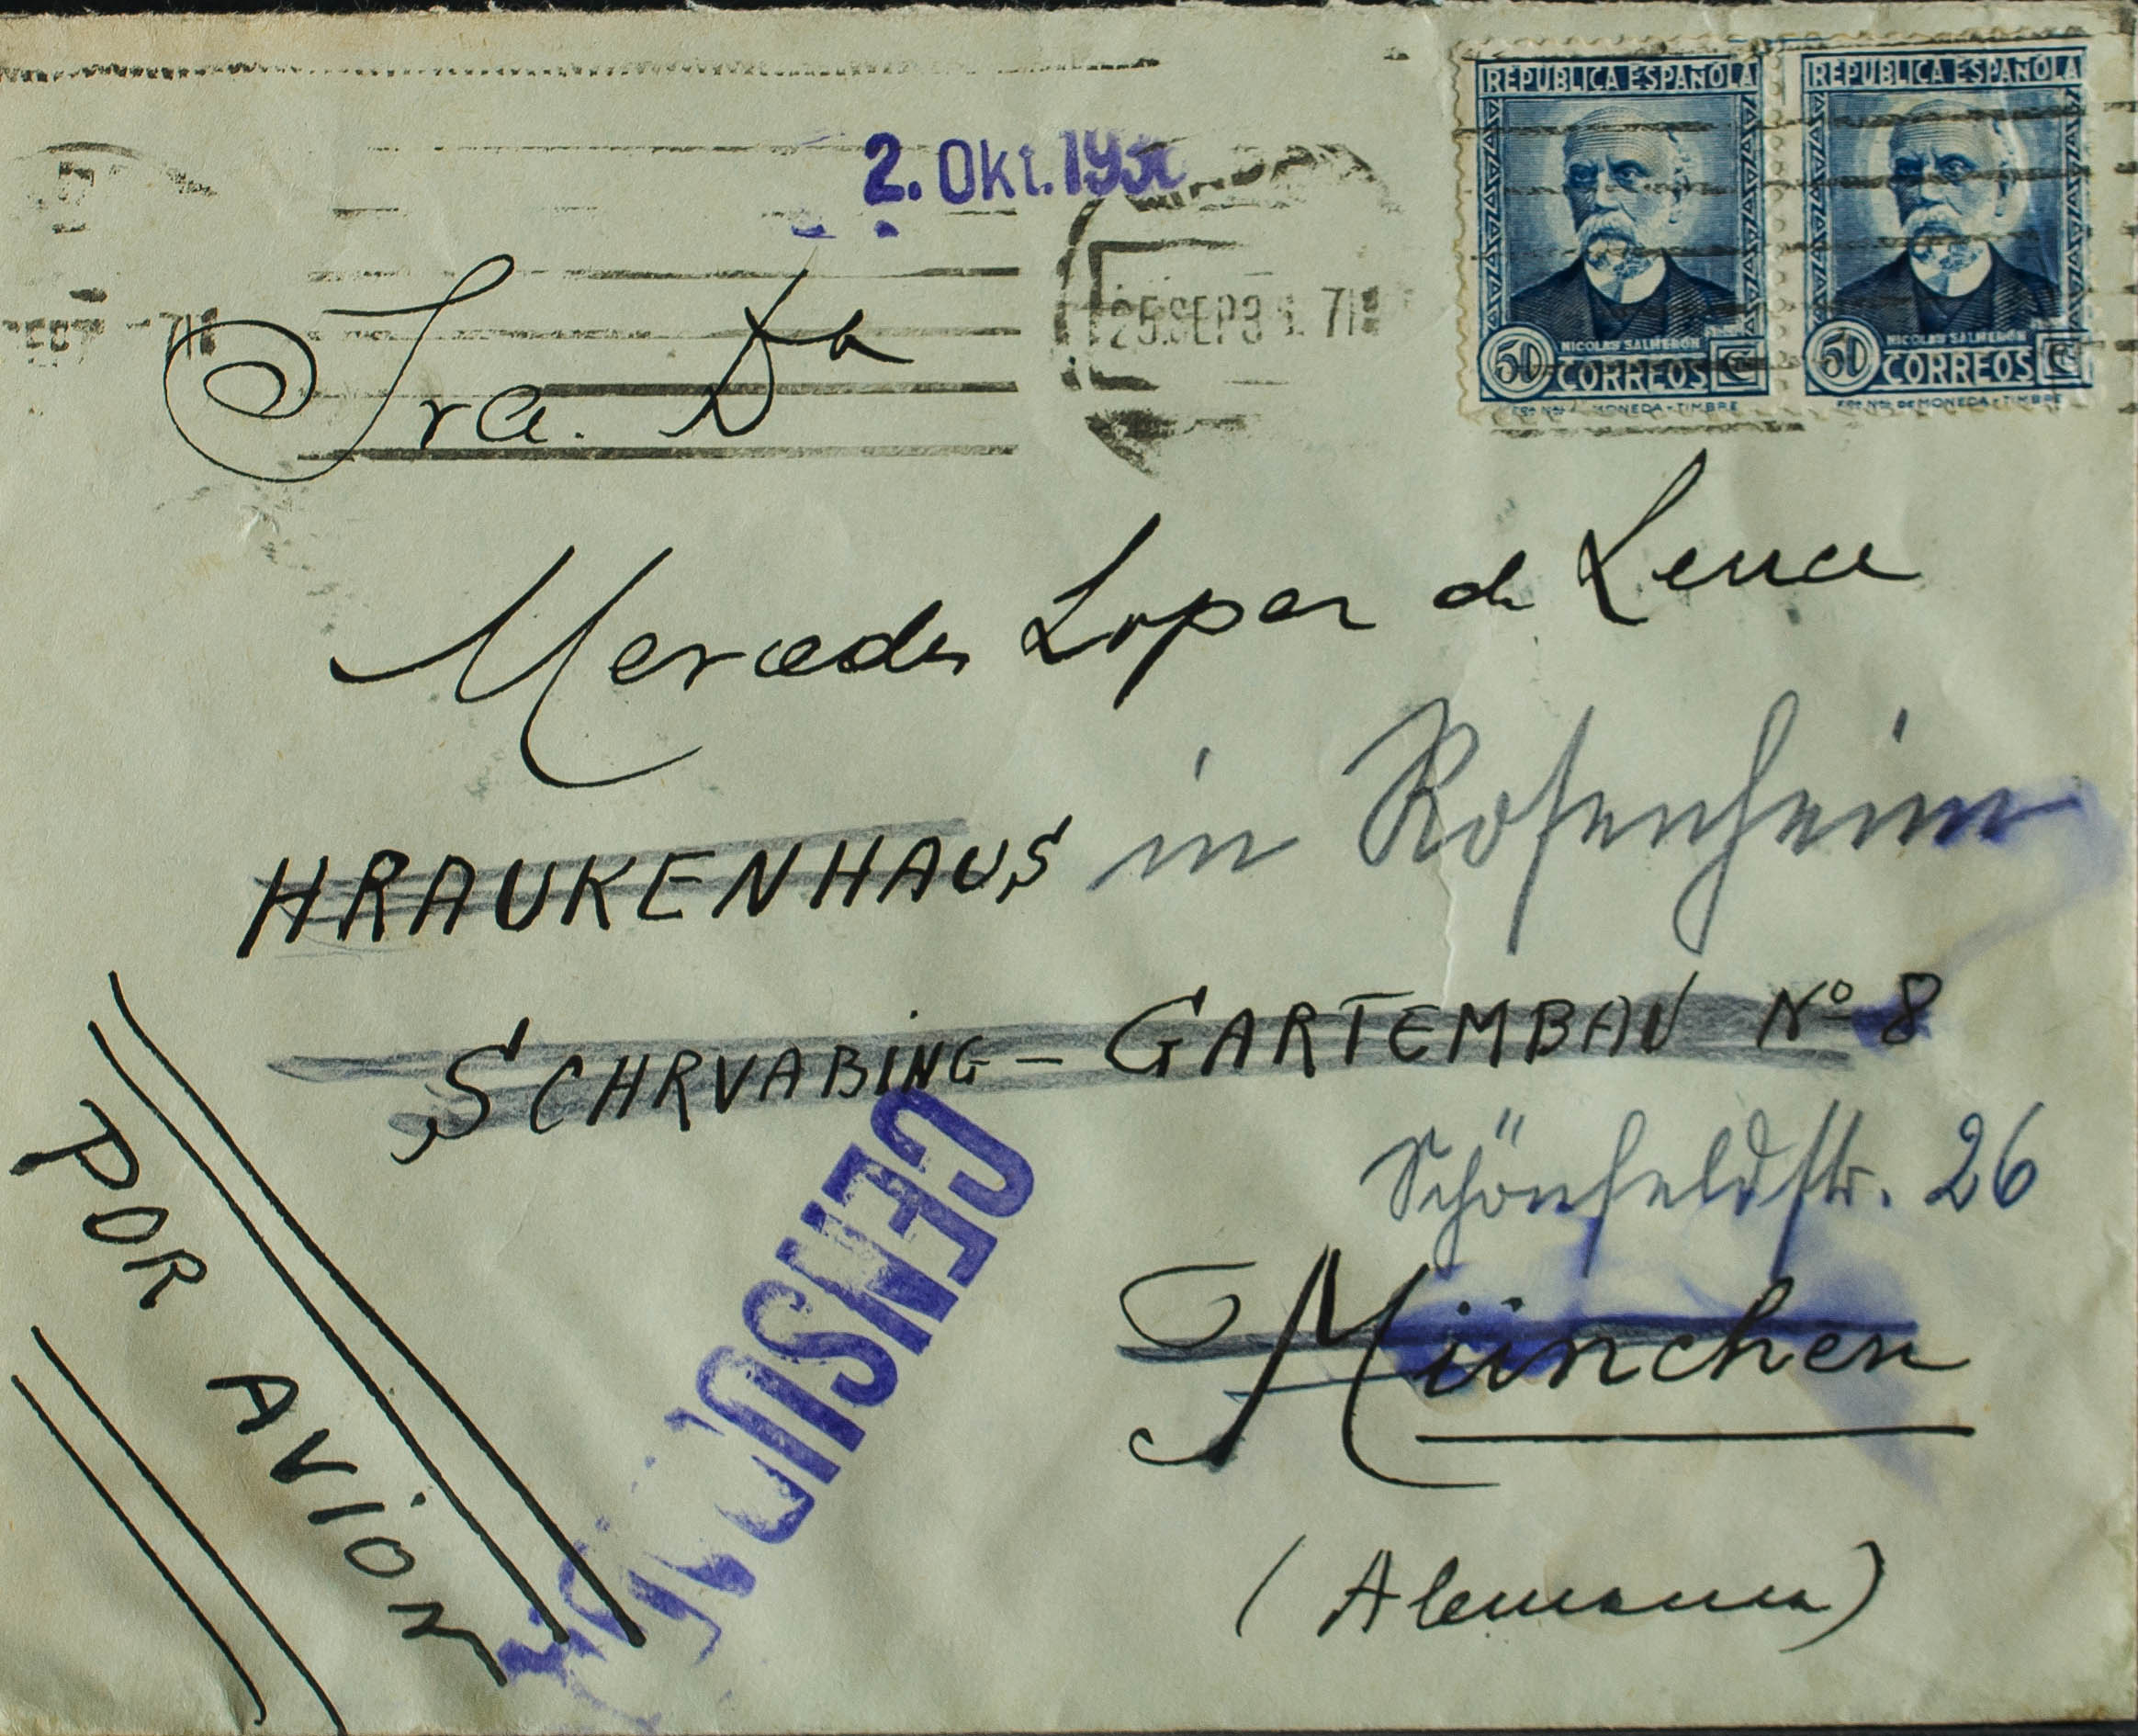 REPUBLICA ESPAÑOLA REPUBLICA ESPAÑOLA
2. Okt. 19
25.SEP3
NICOLAS SALMERON NICOLAS SALMERON
50 CORREOS 50 CORREOS
Fca Nal de MONEDA-TIMBRE Fca Nal de MONEDA-TIMBRE
Sra. Dª
Mercedes Lopez de
HRAUKENHAUS in Rosenheim
SCHRVABING - GARTEMBAU Nº 8
Schönfeldstr. 26
München
(Alemania)
POR AVION
CENSURA